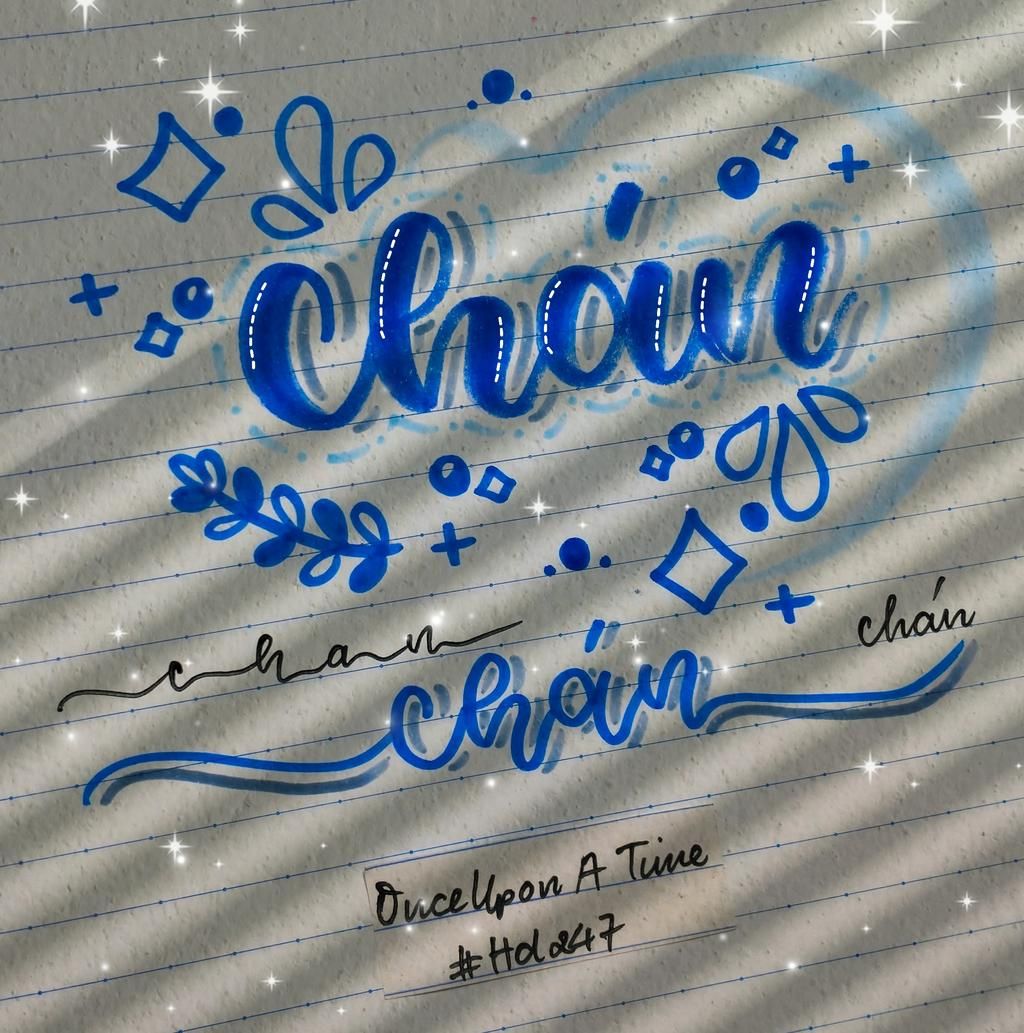 chán
chan
chán
chán
OnceUpon A Time
#Hd247